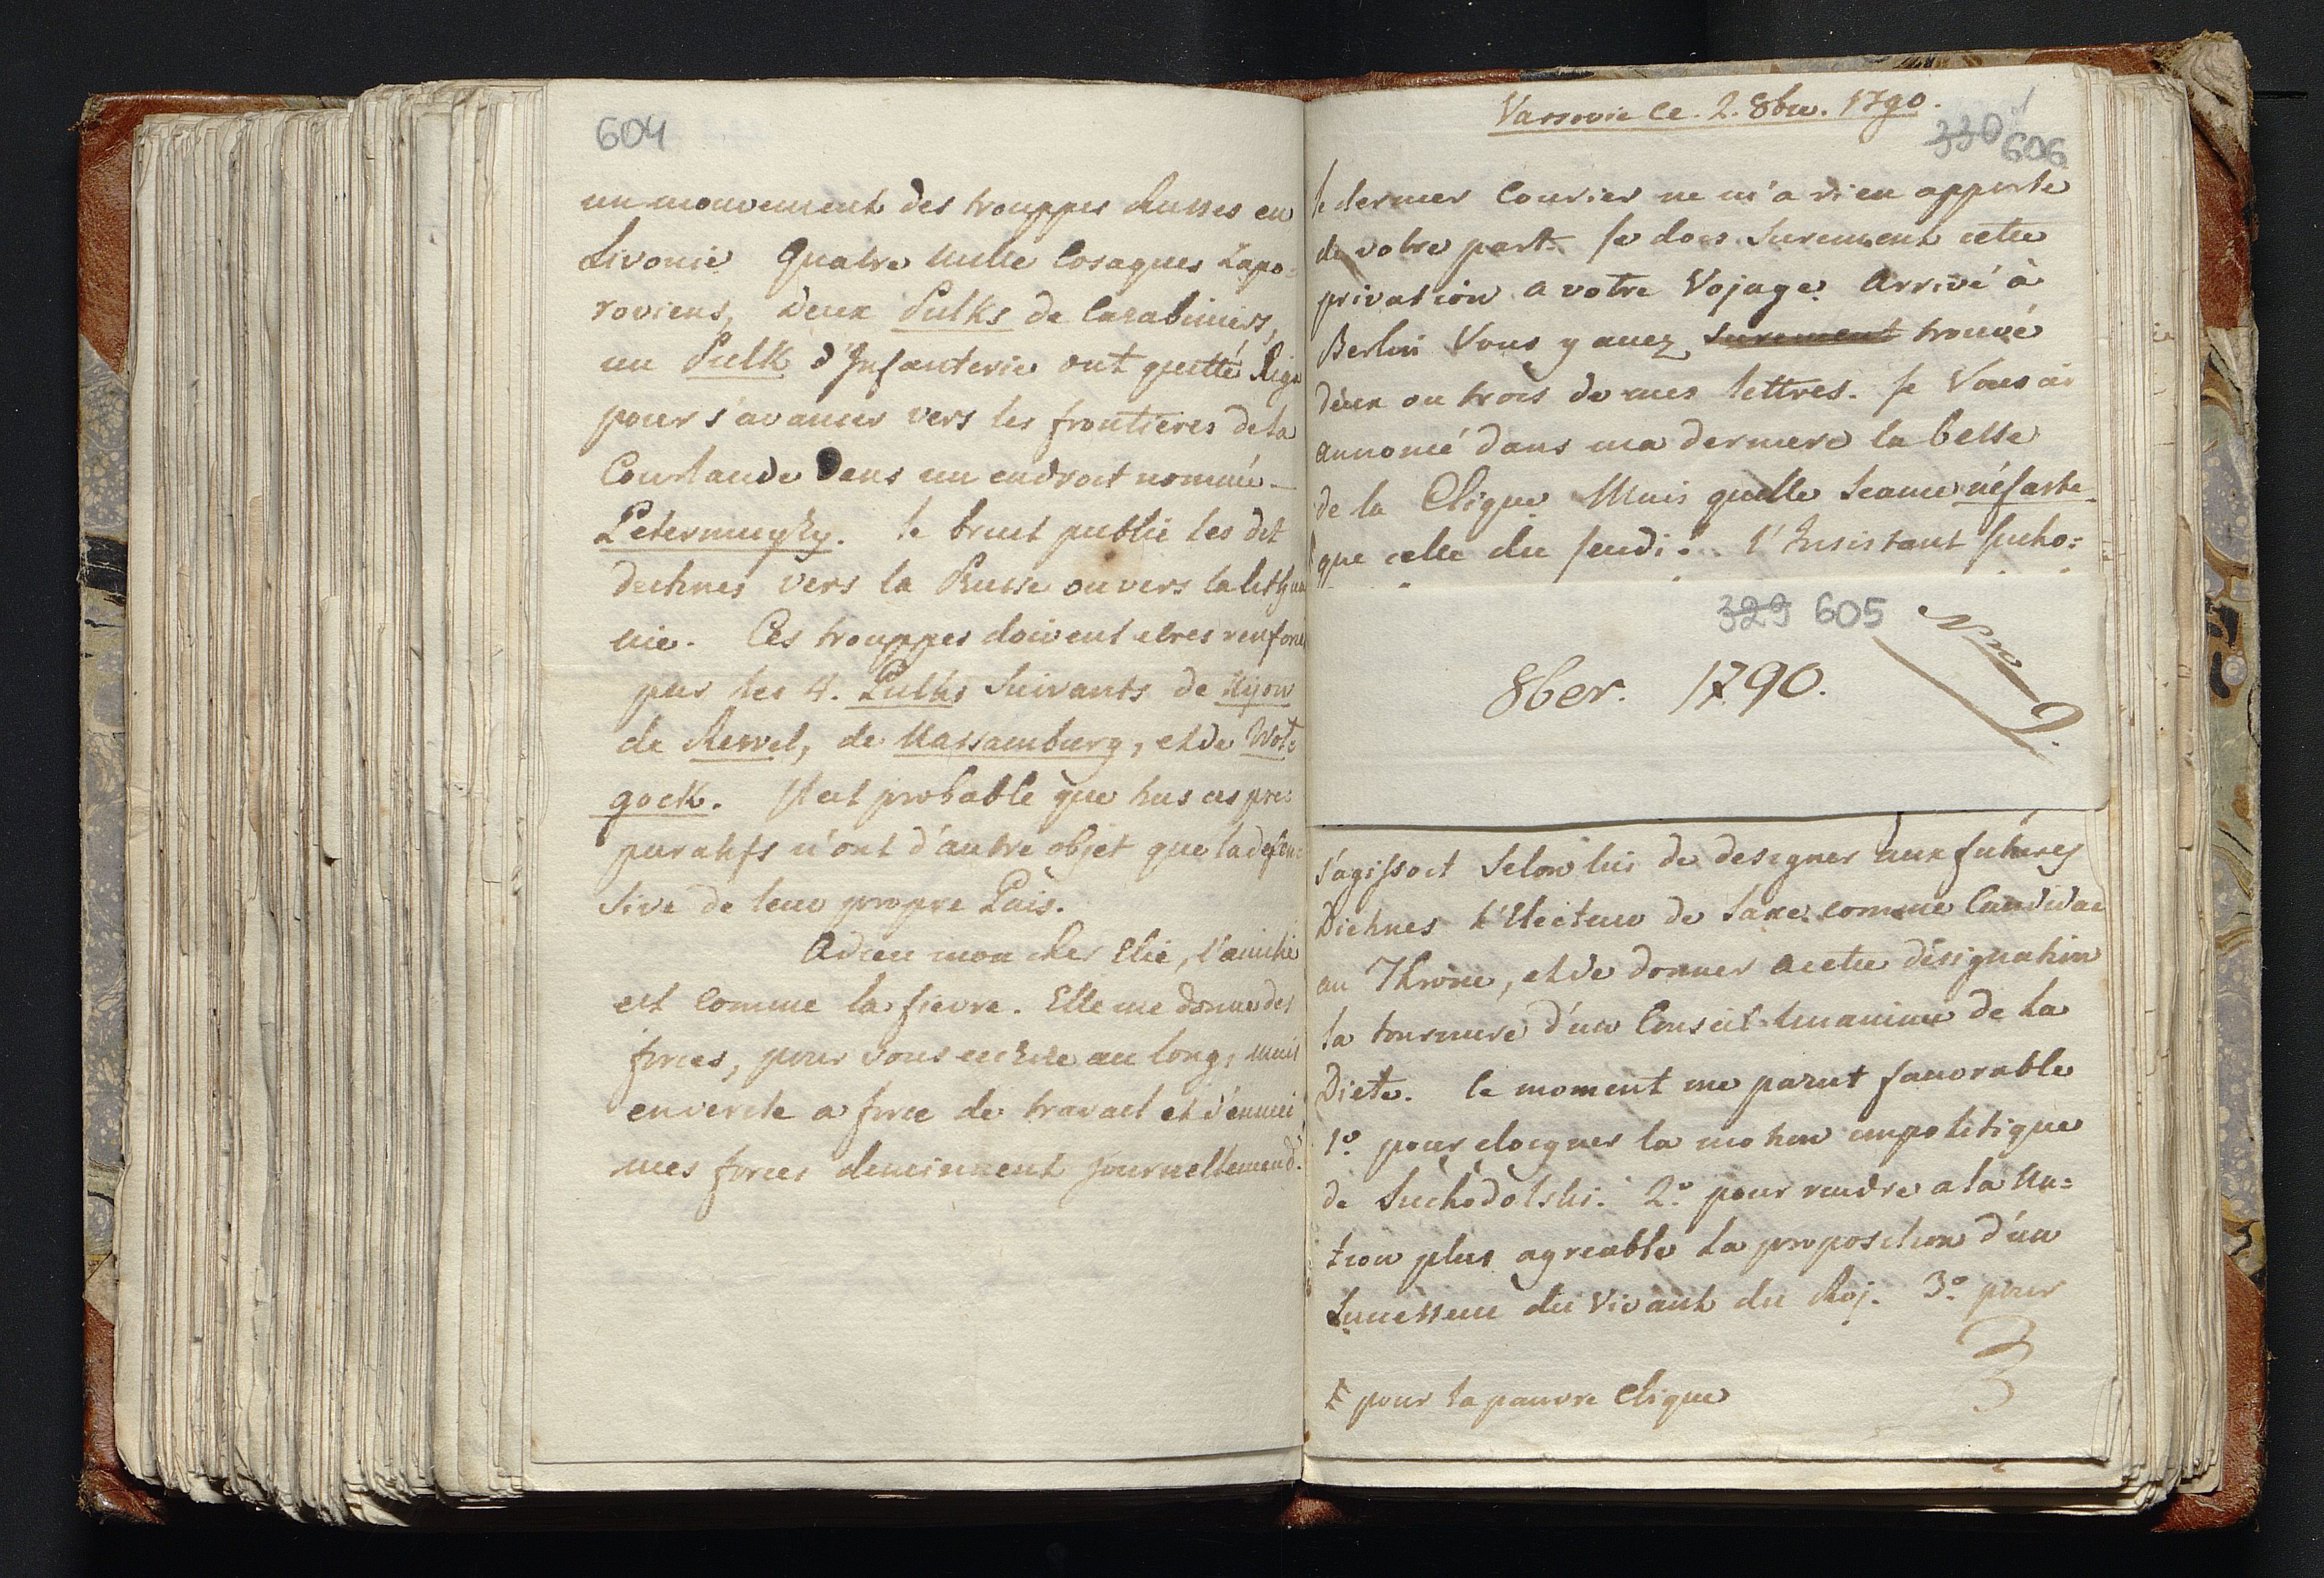 604
un mouvement des trouppes Russes en
Livonie Quatre mille Cosaques Zapo-
roviens, deux Pulks de Carabiniers,
un Pulk d'Infanterie ont quitté Riga
pour s'avancer vers les frontieres de la
Courlande dans un endroit nommé
Petermuyzy. le bruit public les dit
destinés vers la Prusse ou vers la Lithua
nie. Ces trouppes doivent etres renforcé
par les 4. Pulks Suivants de Kijow
de Rewel, de Massamburg, et de Wols
gock. Il est probable que tous ces pre:
paratifs n'ont d'autre objet que la defen:
sive de leur propre Païs.
Adieu mon cher Elie, l'amitié
est comme la fievre. Elle me donne des
forces, pour vous ecrire au long, mais
en verité a force de travail et d'ennui
mes forces diminuent journellement.
Varsovie ce. 2. 8bre. 1790.
330 606
le dernier Courier ne m'a rien apporté
de votre part. Je dois Surement cette
privation a votre Vojage. Arrivé à
Berlin Vous y avez surement trouvé
deux ou trois de mes lettres. Je Vous ai
annoncé dans ma derniere la belle
de la Clique Mais quelle Seance néfaste
que celle du Jeudi! l'Insistant Sucho:
329 605
Nro 9.
8ber. 1790.
s'agissoit Selon lui de designer aux futures
Dietines l'Electeur de Saxe comme Candidat
au Throne, et de donner a cette désignation
la tournure d'un Conseil Unanime de la
Diete. le moment me parut favorable
1º pour eloigner la motion impolitique
de Suchodolski. 2º pour rendre a la Na:
tion plus agreable la proposition d'un
Successeur du Vivant du Roj. 3º pour
pour la pauvre Clique
3